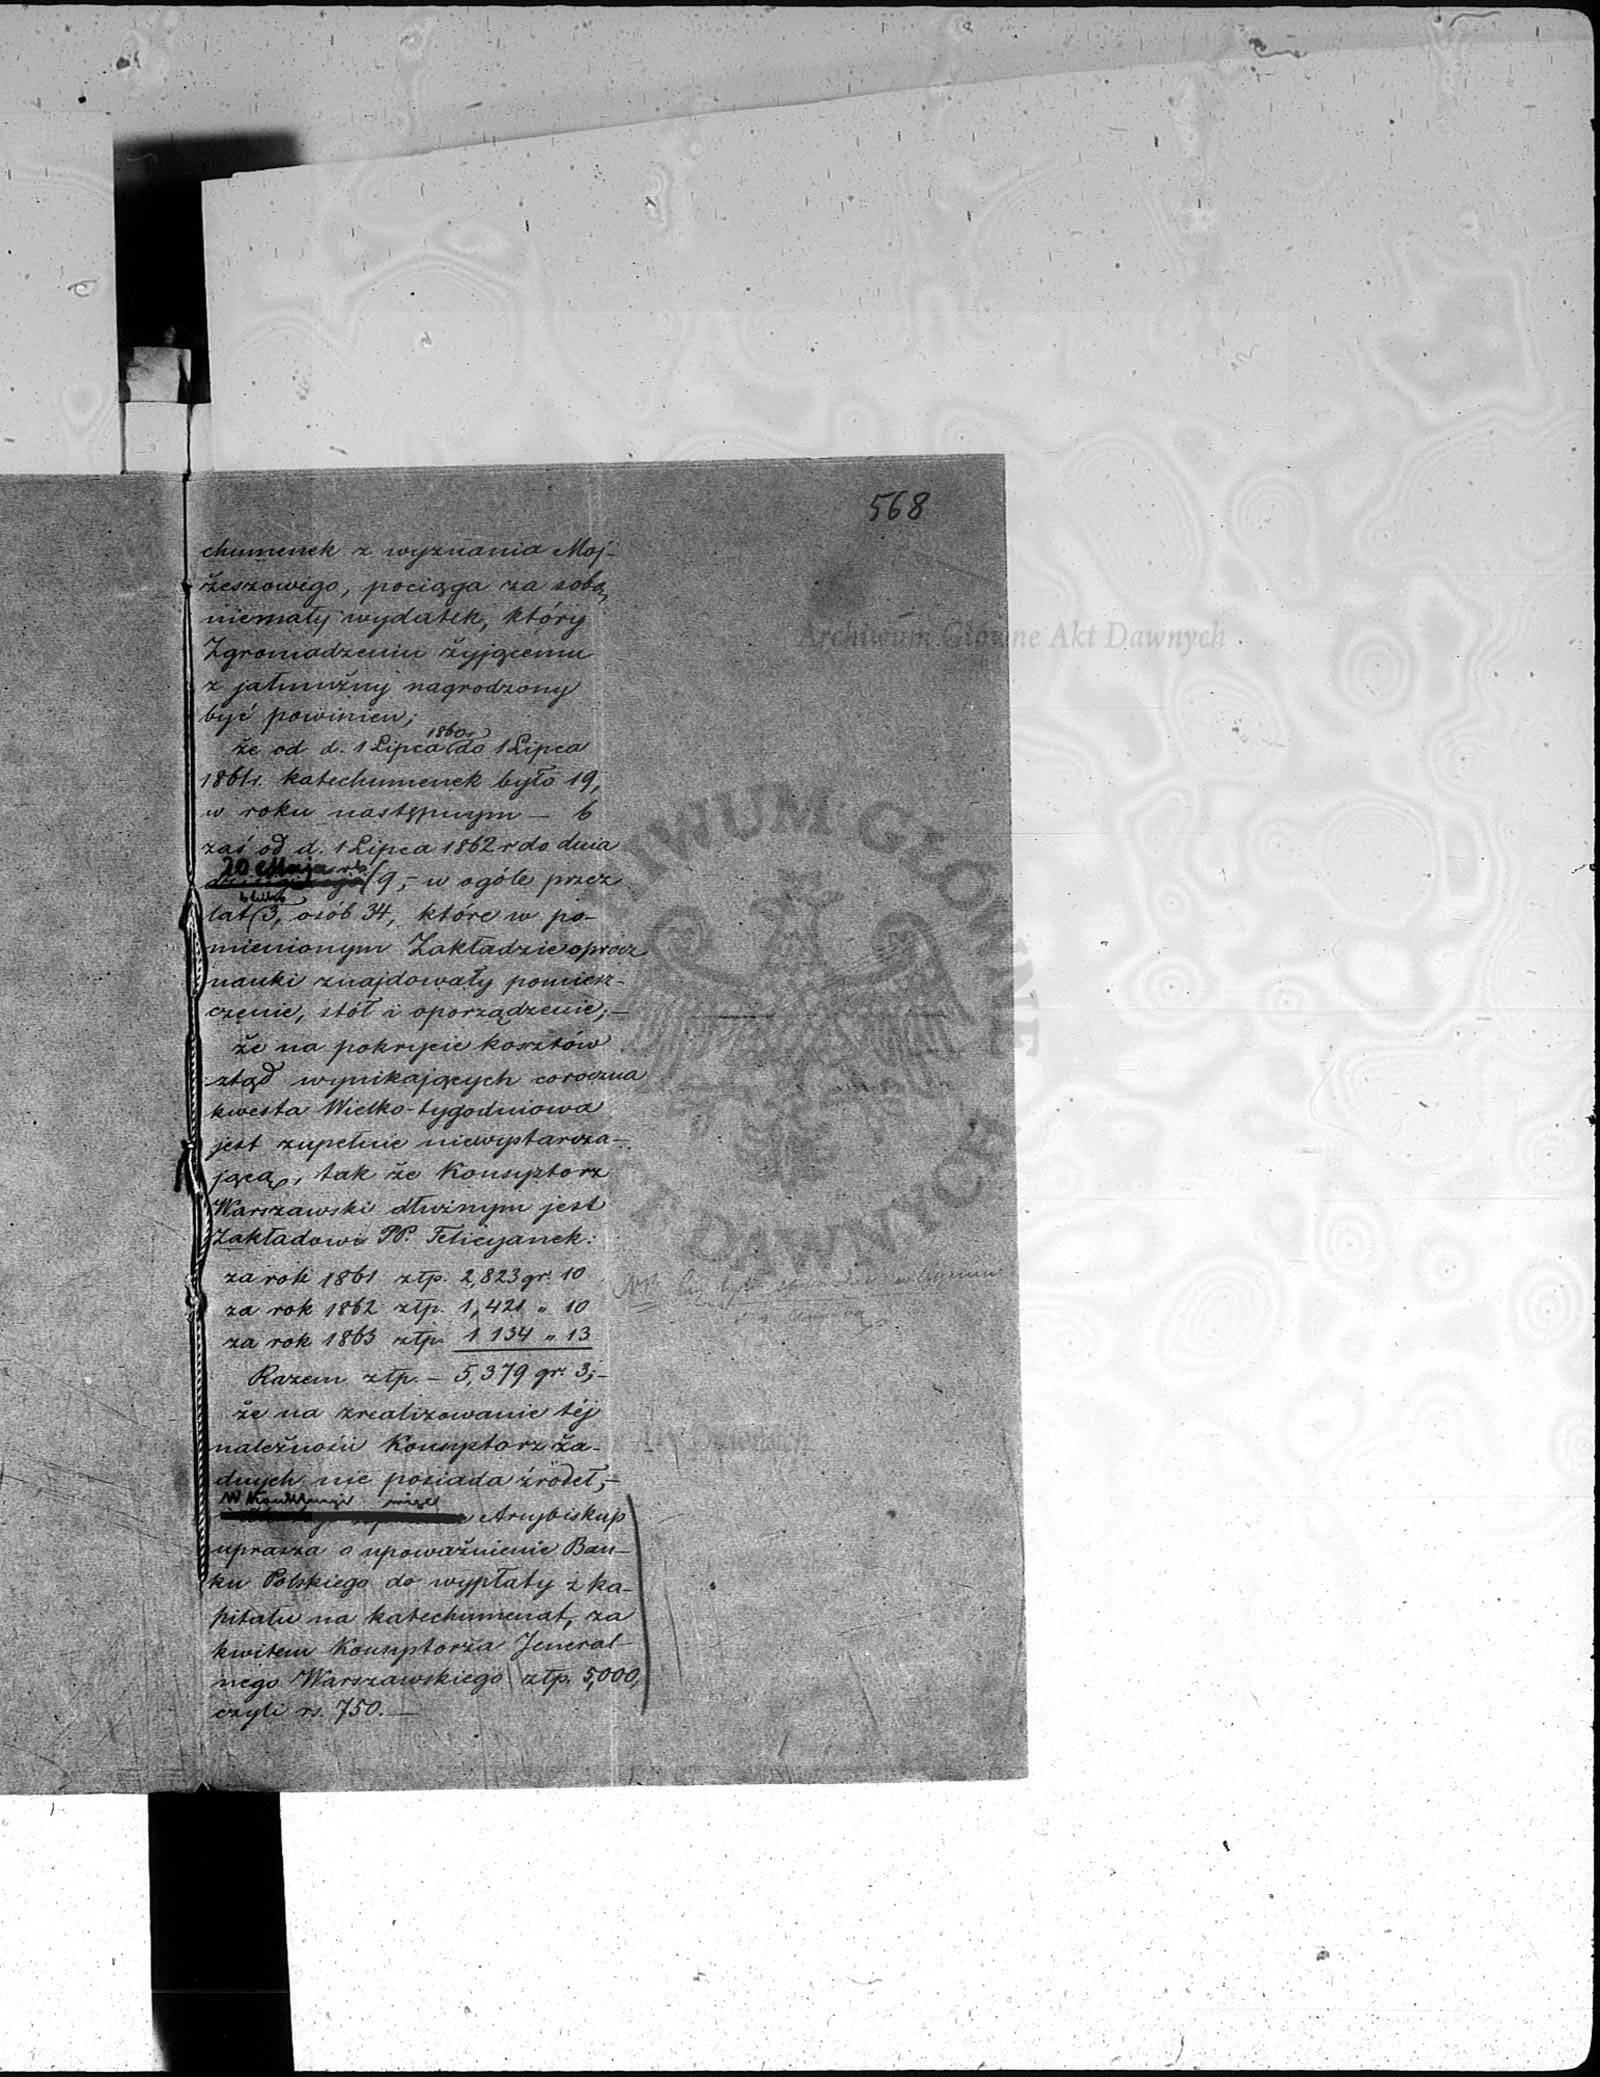 568
chumenek z wyznania Moj-
żeszowego, pociąga za sobą
niemały wydatek, który
Zgromadzeniu żyjącemu
z jałmużny nagrodzony
być powinien;
że od d. 1 Lipca 1860 r. do 1 Lipca
1861 r. katechumenek było 19,
w roku następnym — 6
zaś od d. 1 Lipca 1862 r do dnia
20 Maja r.b. 9, – w ogóle przez
lat 3, osób 34, które w po-
mienionym Zakładzie oprócz
nauki znajdowały pomiesz-
czenie, stół i oporządzenie; –
że na pokrycie kosztów
ztąd wynikających coroczna
kwesta Wielko-tygodniowa
jest zupełnie niewystarcza-
jącą, tak że Konsystorz
Warszawski dłużnym jest
Zakładowi PP. Felicyanek:
za rok 1861 złp. 2,823 gr. 10
za rok 1862 złp. 1,421 " 10
za rok 1863 złp. 1 134 " 13
Razem złp. – 5,379 gr. 3; –
że na zrealizowanie téj
należności Konsystorz ża-
dnych nie posiada źródeł, –
W Konkluzyi więc Arcybiskup
uprasza o upoważnienie Ban-
ku Polskiego do wypłaty z ka-
pitału na katechumenat, za
kwitem Konsystorza Jeneral-
nego Warszawskiego złp. 5,000,
czyli rs. 750. —
Archiwum Główne Akt Dawnych
ARCHIWUM GŁÓWNE
AKT DAWNYCH